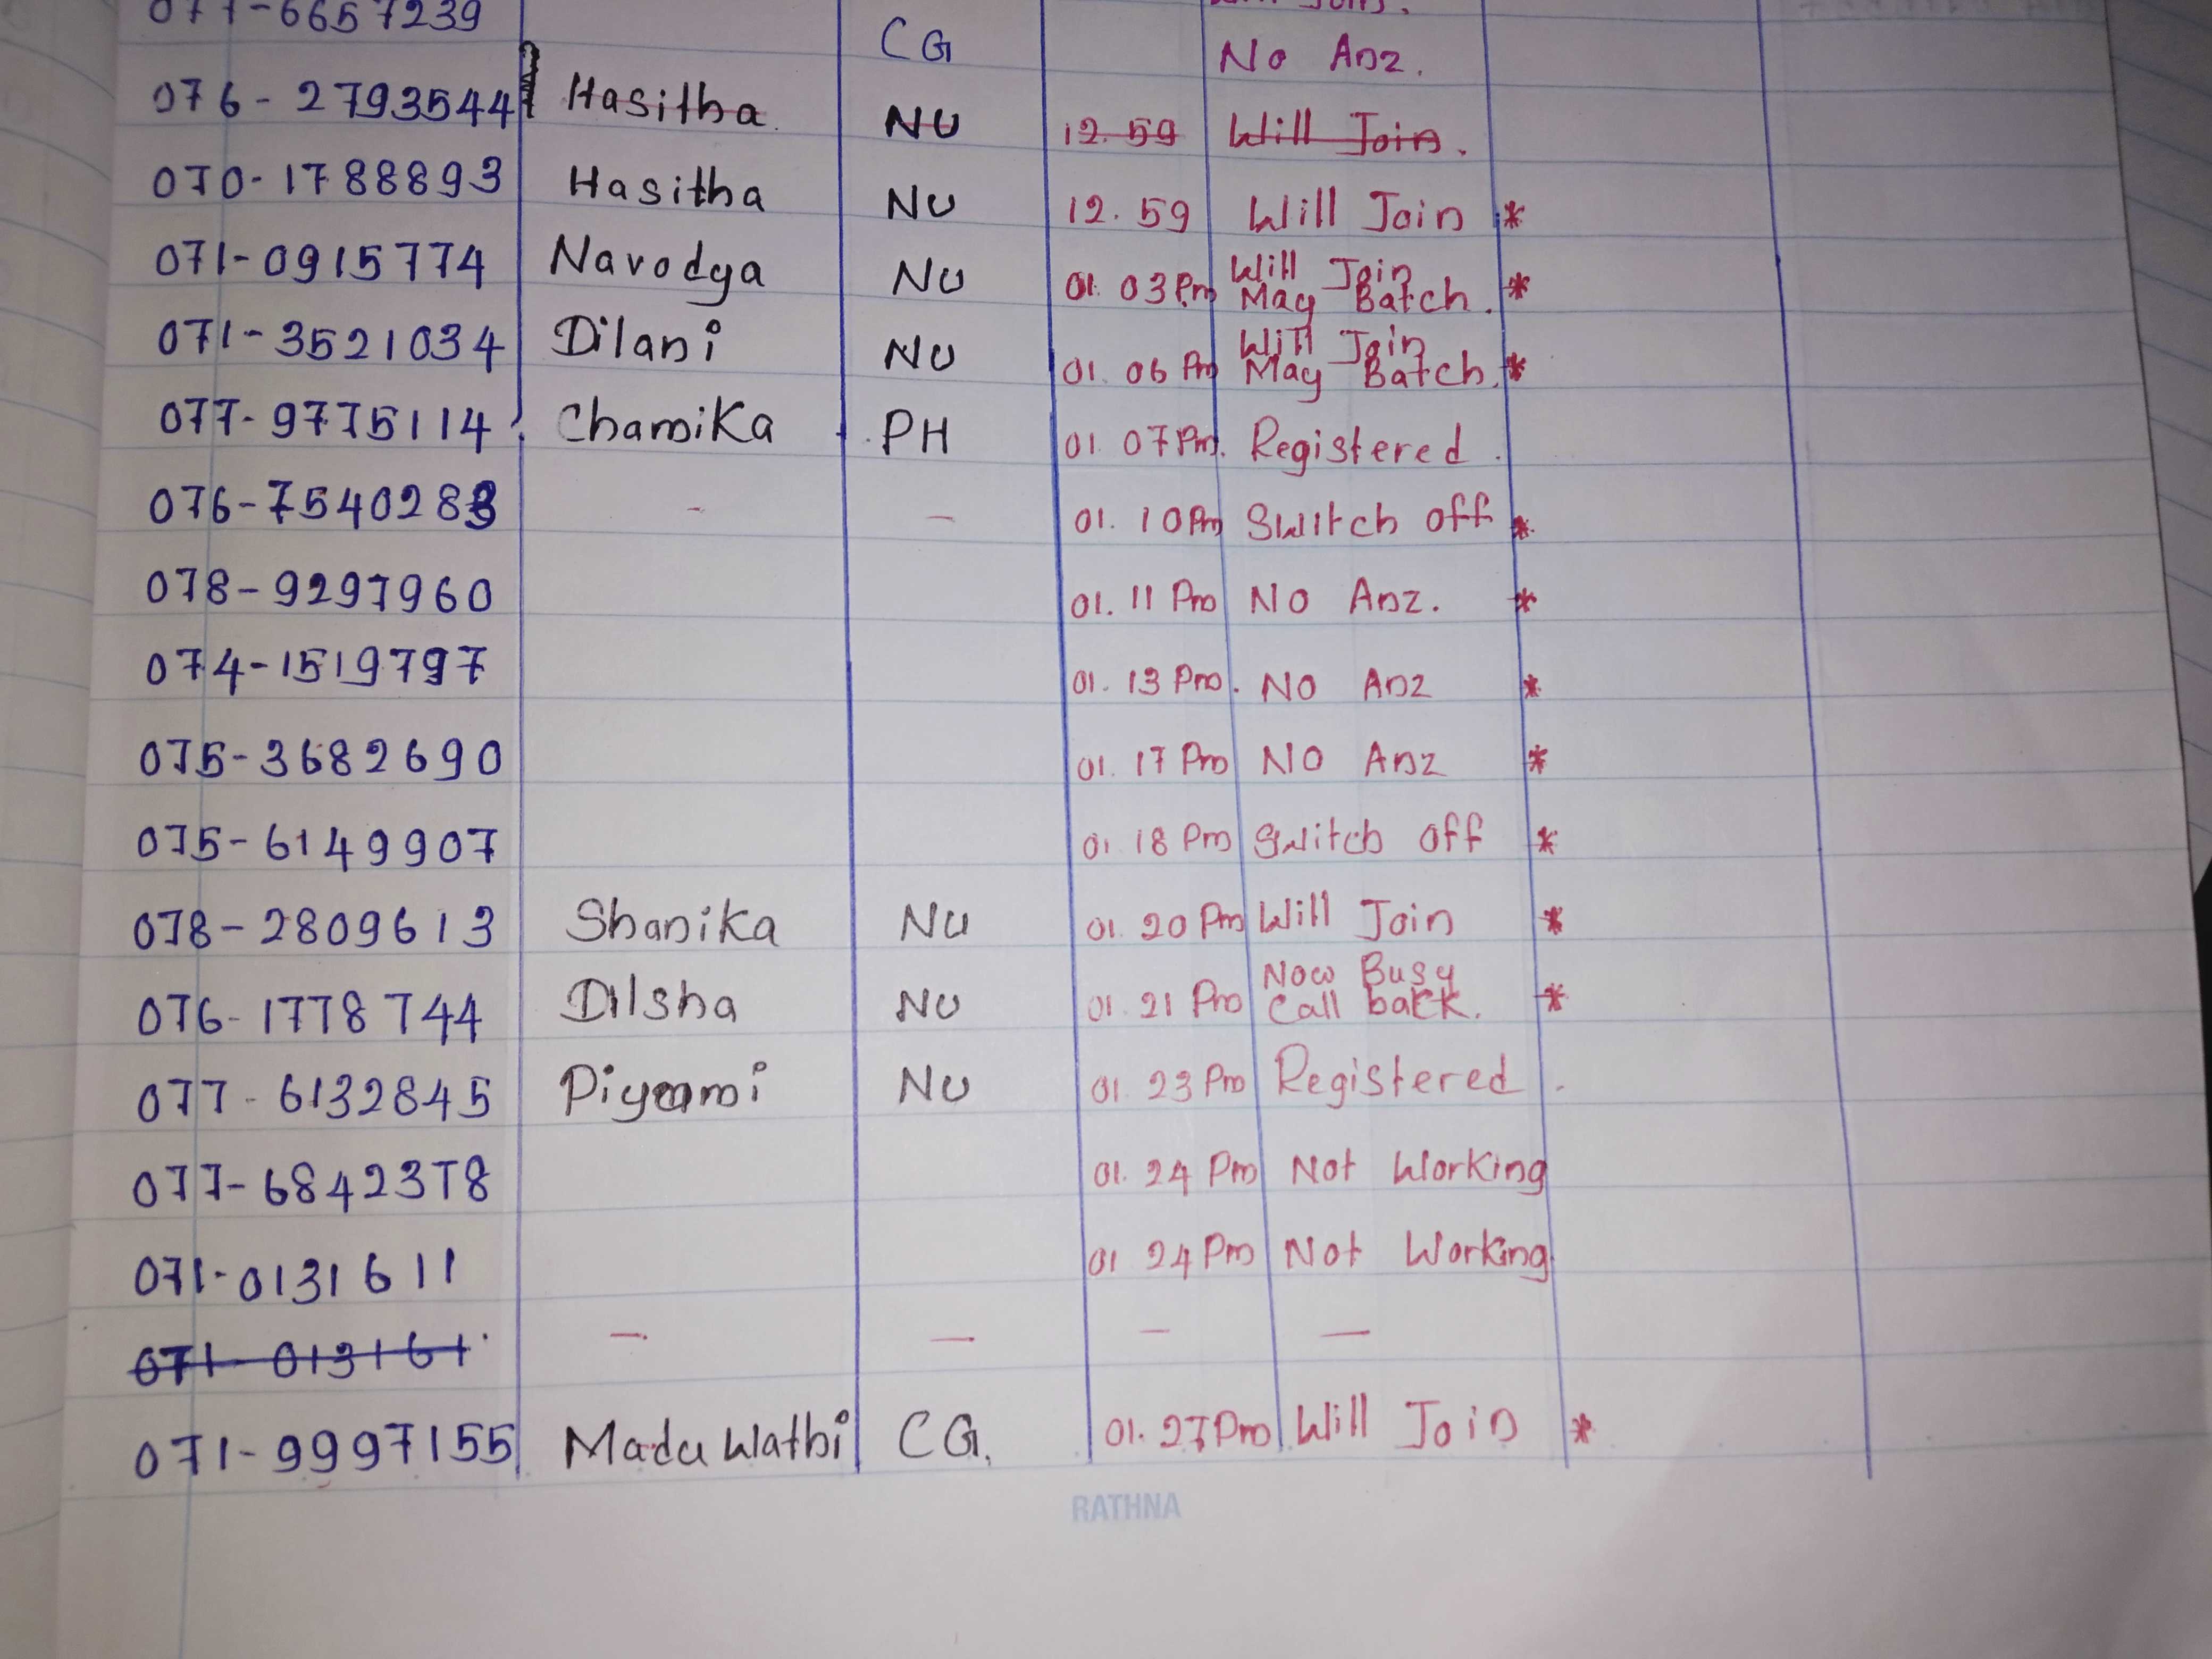 077-6657239 CG No Anz.
076-2793544 Hasitha NU 12.59 Will Join.
070-1788893 Hasitha NU 12.59 Will Join *
071-0915774 Navodya NU 01.03 Pm Will Join May Batch. *
071-3521034 Dilani NU 01.06 Pm Will Join May Batch. *
077-9775114 Chamika PH 01.07 Pm. Registered.
076-7540283 - - 01.10 Pm Switch off *
078-9297960 01.11 Pm No Anz. *
074-1519797 01.13 Pm. No Anz *
075-3682690 01.17 Pm No Anz *
075-6149907 01.18 Pm Switch off *
078-2809613 Shanika NU 01.20 Pm Will Join *
076-1778744 Dilsha NU 01.21 Pm Now Busy Call back. *
077-6132845 Piyumi NU 01.23 Pm Registered.
077-6842378 01.24 Pm Not Working
071-0131611 01 24 Pm Not Working
071-013161 - - - -
071-9997155 Madu Wathi CG. 01.27 Pm Will Join *
RATHNA